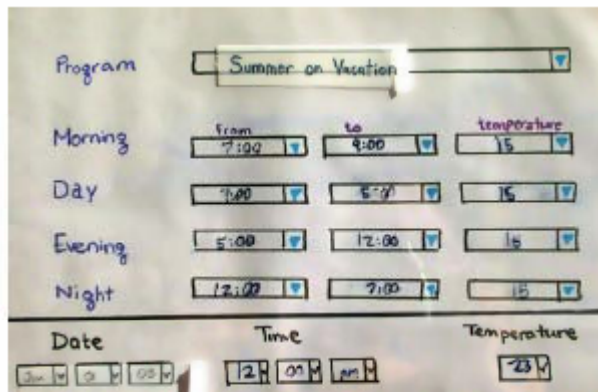 Program Summer on Vacation
from to temperature
Morning 7:00 9:00 15
Day 5:00 15
Evening 5:00 12:00 15
Night 12:00 7:00 15
Date Time Temperature
12 00 pm 23